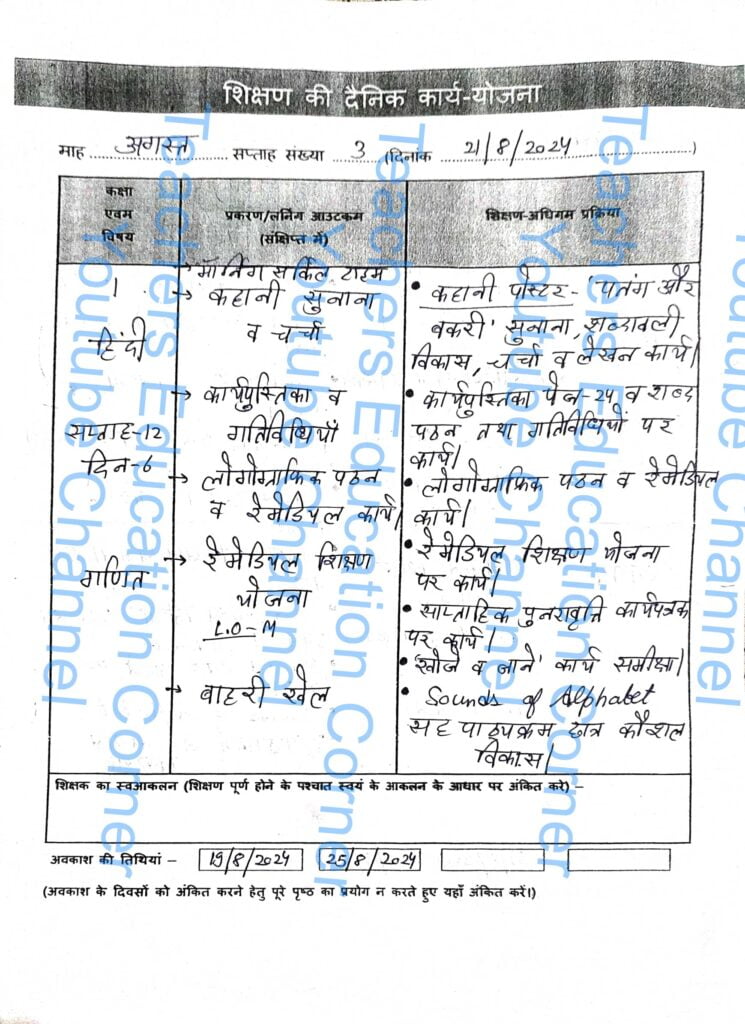 शिक्षण की दैनिक कार्य-योजना
माह अगस्त सप्ताह संख्या 3 (दिनांक 21/8/2024)
कक्षा
एवम
विषय
प्रकरण/लर्निंग आउटकम
(संक्षिप्त में)
शिक्षण-अधिगम प्रक्रिया
1
हिंदी
सप्ताह-12
दिन-6
गणित
→ मॉर्निंग सर्किल टाइम
→ कहानी सुनाना
व चर्चा
→ कार्यपुस्तिका व
गतिविधियाँ
→ लोगोग्राफिक पठन
व रेमेडियल कार्य।
→ रेमेडियल शिक्षण
योजना
L.O-M
→ बाहरी खेल
• कहानी पोस्टर - 'पतंग और
बकरी' सुनाना, शब्दावली
विकास, चर्चा व लेखन कार्य।
• कार्यपुस्तिका पेज-24 व शब्द
पठन तथा गतिविधियों पर
कार्य।
• लोगोग्राफिक पठन व रेमेडियल
कार्य।
• रेमेडियल शिक्षण योजना
पर कार्य।
• साप्ताहिक पुनरावृत्ति कार्यपत्रक
पर कार्य।
• 'खोजें व जाने' कार्य समीक्षा।
• Sounds of Alphabet
सह पाठ्यक्रम छात्र कौशल
विकास।
शिक्षक का स्वआकलन (शिक्षण पूर्ण होने के पश्चात स्वयं के आकलन के आधार पर अंकित करे) –
अवकाश की तिथियां – 19/8/2024 25/8/2024
(अवकाश के दिवसों को अंकित करने हेतु पूरे पृष्ठ का प्रयोग न करते हुए यहाँ अंकित करें।)
Teachers Education Corner
Youtube Channel
Teachers Education Corner
Youtube Channel
Teachers Education Corner
Youtube Channel